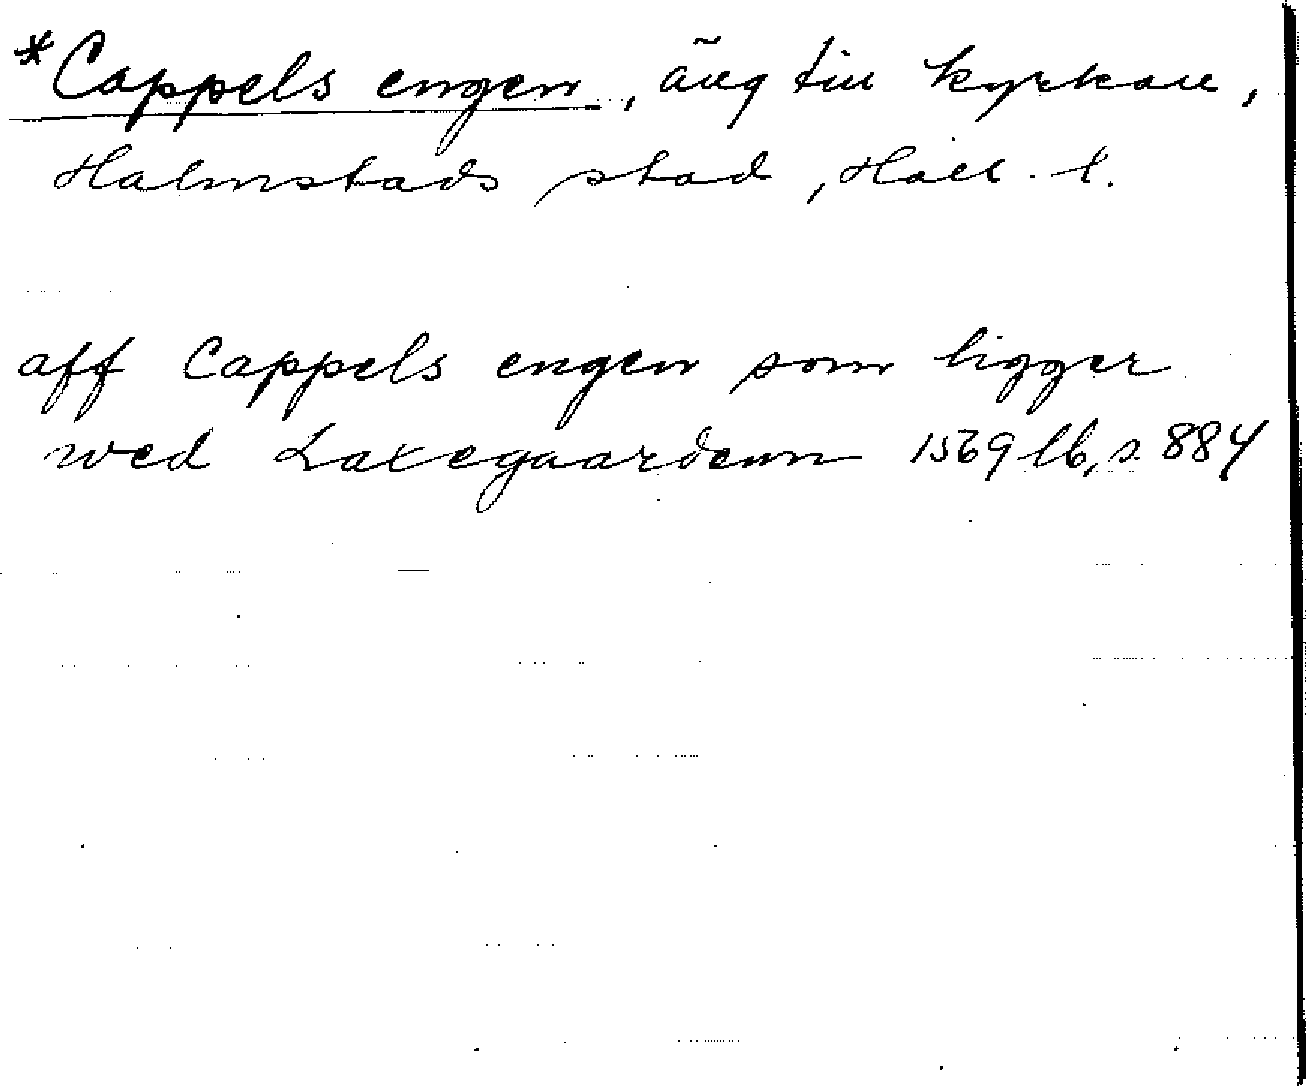 *Cappels engen, äng till kyrkan,
Halmstads stad, Hall. l.
aff Cappels engen som ligger
wed Laxegaardenn 1569 lb, s. 884